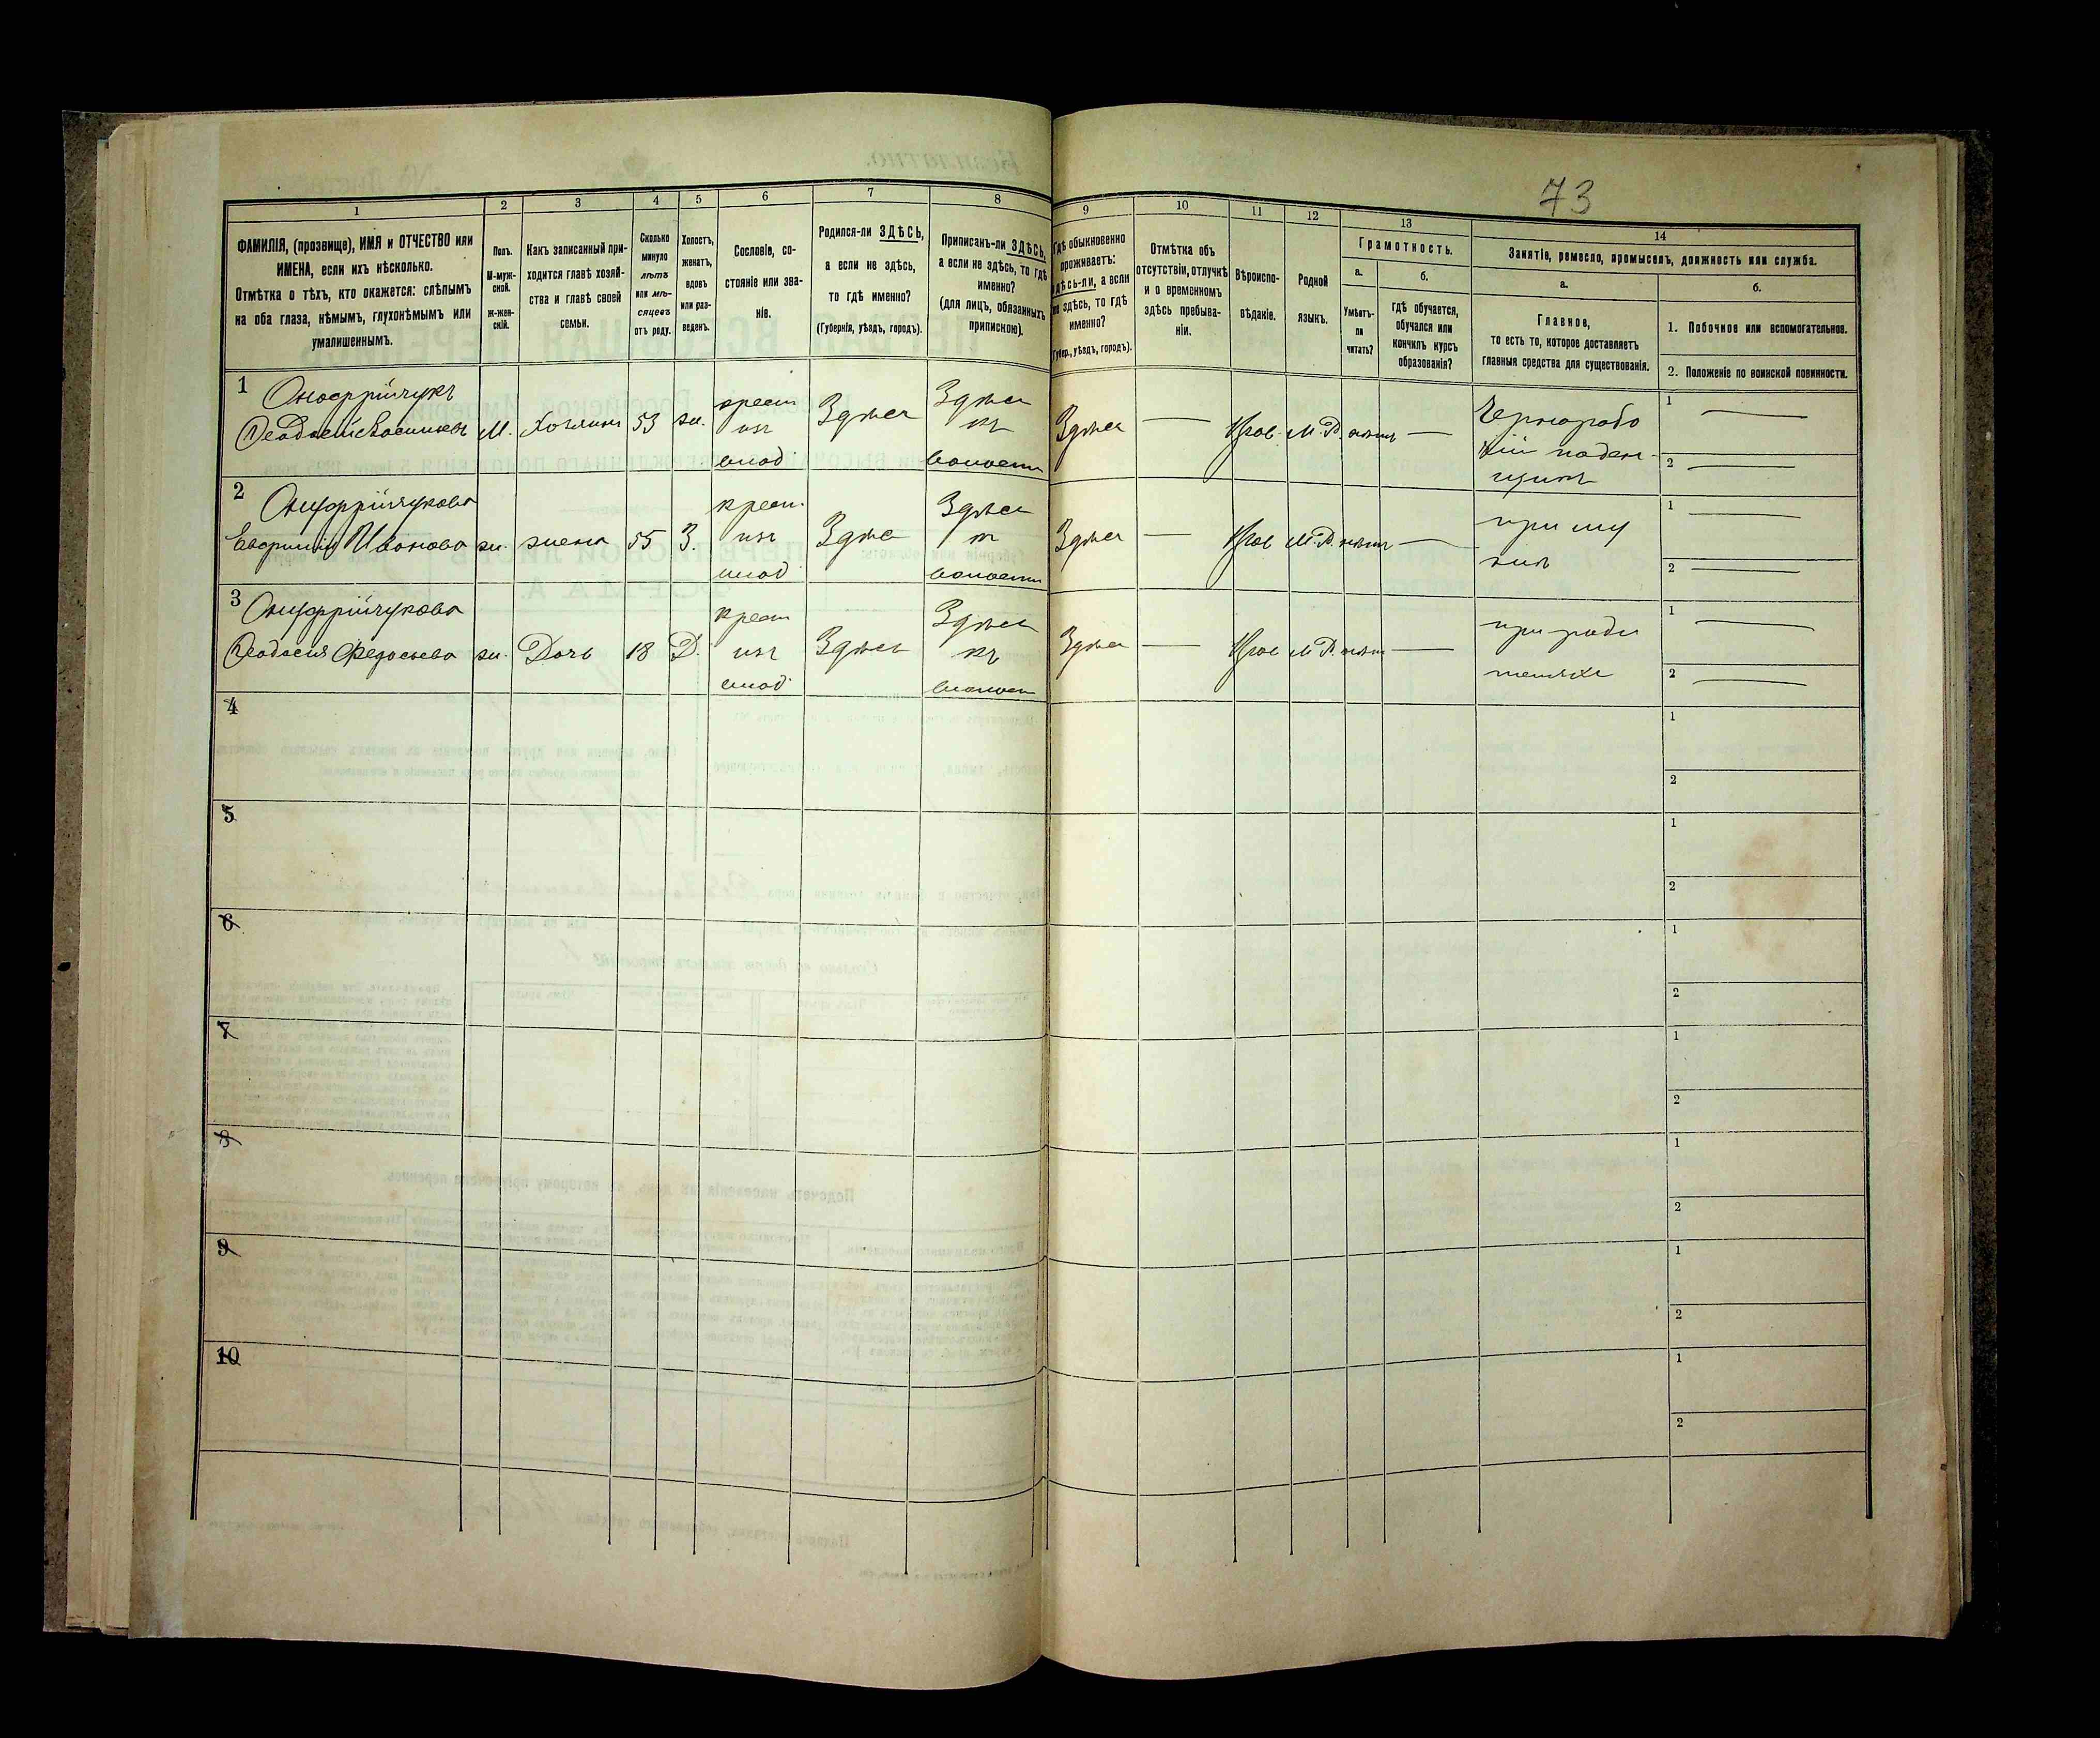 73
1 2 3 4 5 6 7 8 9 10 11 12 13 14
ФАМИЛІЯ, (прозвище), ИМЯ и ОТЧЕСТВО или
ИМЕНА, если ихъ нѣсколько.
Отмѣтка о тѣхъ, кто окажется: слѣпымъ
на оба глаза, нѣмымъ, глухонѣмымъ или
умалишеннымъ.
Полъ.
М-муж-
ской.
Ж-жен-
скій.
Какъ записанный при-
ходится главѣ хозяй-
ства и главѣ своей
семьи.
Сколько
минуло
лѣтъ
или мѣ-
сяцевъ
отъ роду.
Холостъ,
женатъ,
вдовъ
или раз-
веденъ.
Сословіе, со-
стояніе или зва-
ніе.
Родился-ли ЗДѢСЬ,
а если не здѣсь,
то гдѣ именно?
(Губернія, уѣздъ, городъ).
Приписанъ-ли ЗДѢСЬ,
а если не здѣсь, то гдѣ
именно?
(для лицъ, обязанныхъ
припискою).
Гдѣ обыкновенно
проживаетъ:
здѣсь-ли, а если
не здѣсь, то гдѣ
именно?
(Губер., уѣздъ, городъ).
Отмѣтка объ
отсутствіи, отлучкѣ
и о временномъ
здѣсь пребыва-
ніи.
Вѣроиспо-
вѣданіе.
Родной
языкъ.
Грамотность.
а.
Умѣетъ-
ли
читать?
б.
Гдѣ обучается,
обучался или
кончилъ курсъ
образованія?
Занятіе, ремесло, промыселъ, должность или служба.
а.
Главное,
то есть то, которое доставляетъ
главныя средства для существованія.
б.
1. Побочное или вспомогательное.
2. Положеніе по воинской повинности.
1 Онофрійчукъ
Феодосій Васильевъ М. Хозяинъ 53 ж. Здѣсь Здѣсь Прав. М.Р. нѣтъ
крест.
изъ
волости
Чернорабо
чій поден-
щикъ
1
2
2 Онуфрійчукова
Евфимія Иванова ж. жена 55 З. Здѣсь Здѣсь Прав. М.Р. нѣтъ
крест.
изъ
волости
при му
жѣ
1
2
3 Онуфрійчукова
Феодосія Федосьева ж. Дочь 18 Д. Здѣсь Здѣсь Прав. М.Р. нѣтъ
крест
изъ
при роди
теляхъ
1
2
4
1
2
5
1
2
6
1
2
7
1
2
8
1
2
9
1
2
10
1
2